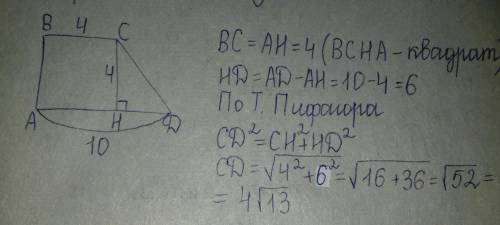 B 4 C
4
A H D
10
BC=AH=4 (BCHA-квадрат)
HD=AD-AH=10-4=6
По Т. Пифагора
CD²=CH²+HD²
CD=√4²+6²=√16+36=√52=
=4√13